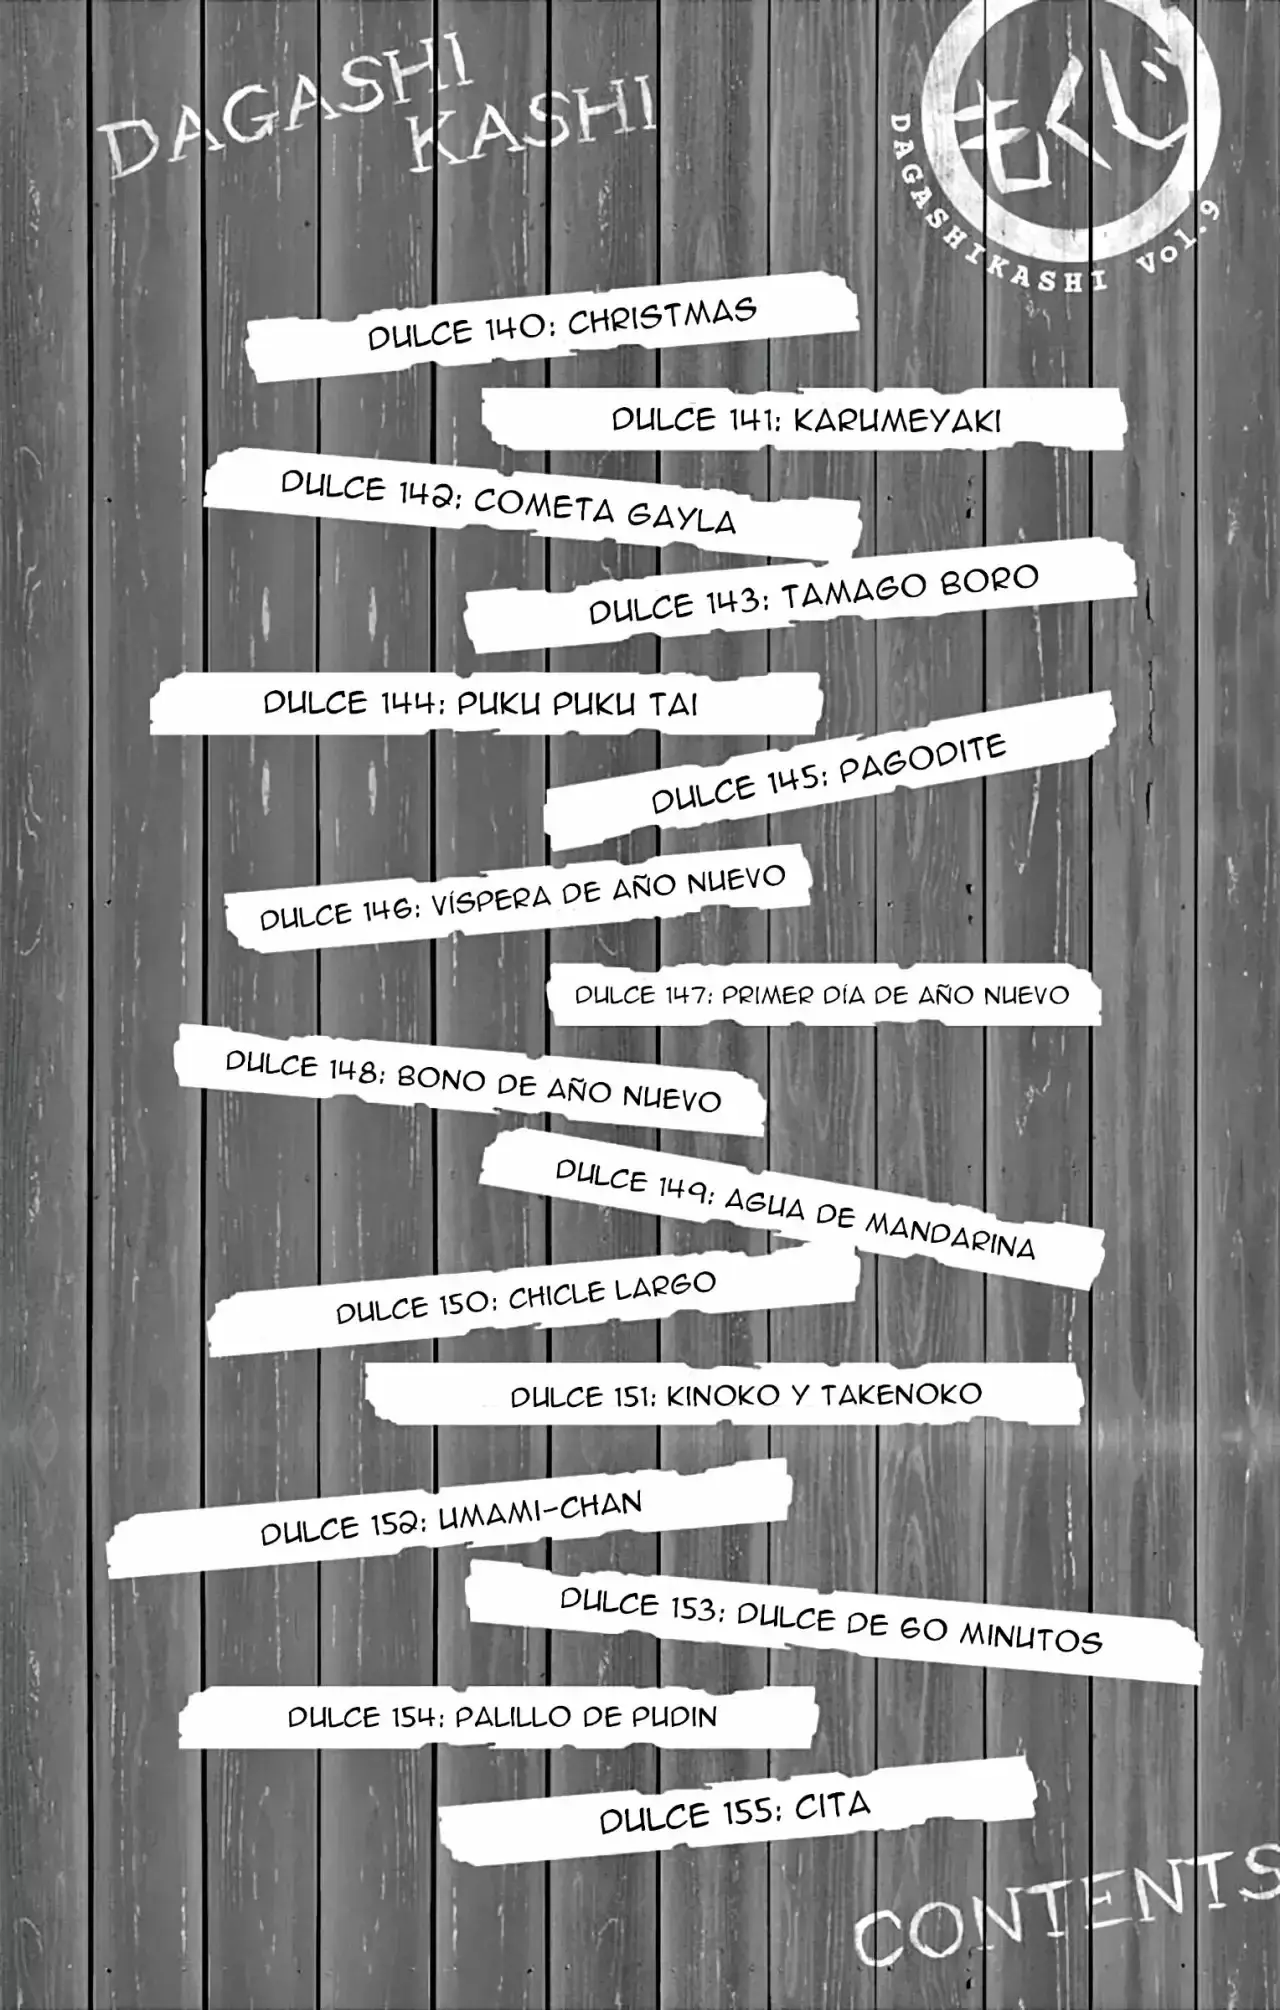 DAGASHI
KASHI
もくじ
DAGASHIKASHI Vol.9
DULCE 140: CHRISTMAS
DULCE 141: KARUMEYAKI
DULCE 142: COMETA GAYLA
DULCE 143: TAMAGO BORO
DULCE 144: PUKU PUKU TAI
DULCE 145: PAGODITE
DULCE 146: VÍSPERA DE AÑO NUEVO
DULCE 147: PRIMER DÍA DE AÑO NUEVO
DULCE 148: BONO DE AÑO NUEVO
DULCE 149: AGUA DE MANDARINA
DULCE 150: CHICLE LARGO
DULCE 151: KINOKO Y TAKENOKO
DULCE 152: UMAMI-CHAN
DULCE 153: DULCE DE 60 MINUTOS
DULCE 154: PALILLO DE PUDIN
DULCE 155: CITA
CONTENTS